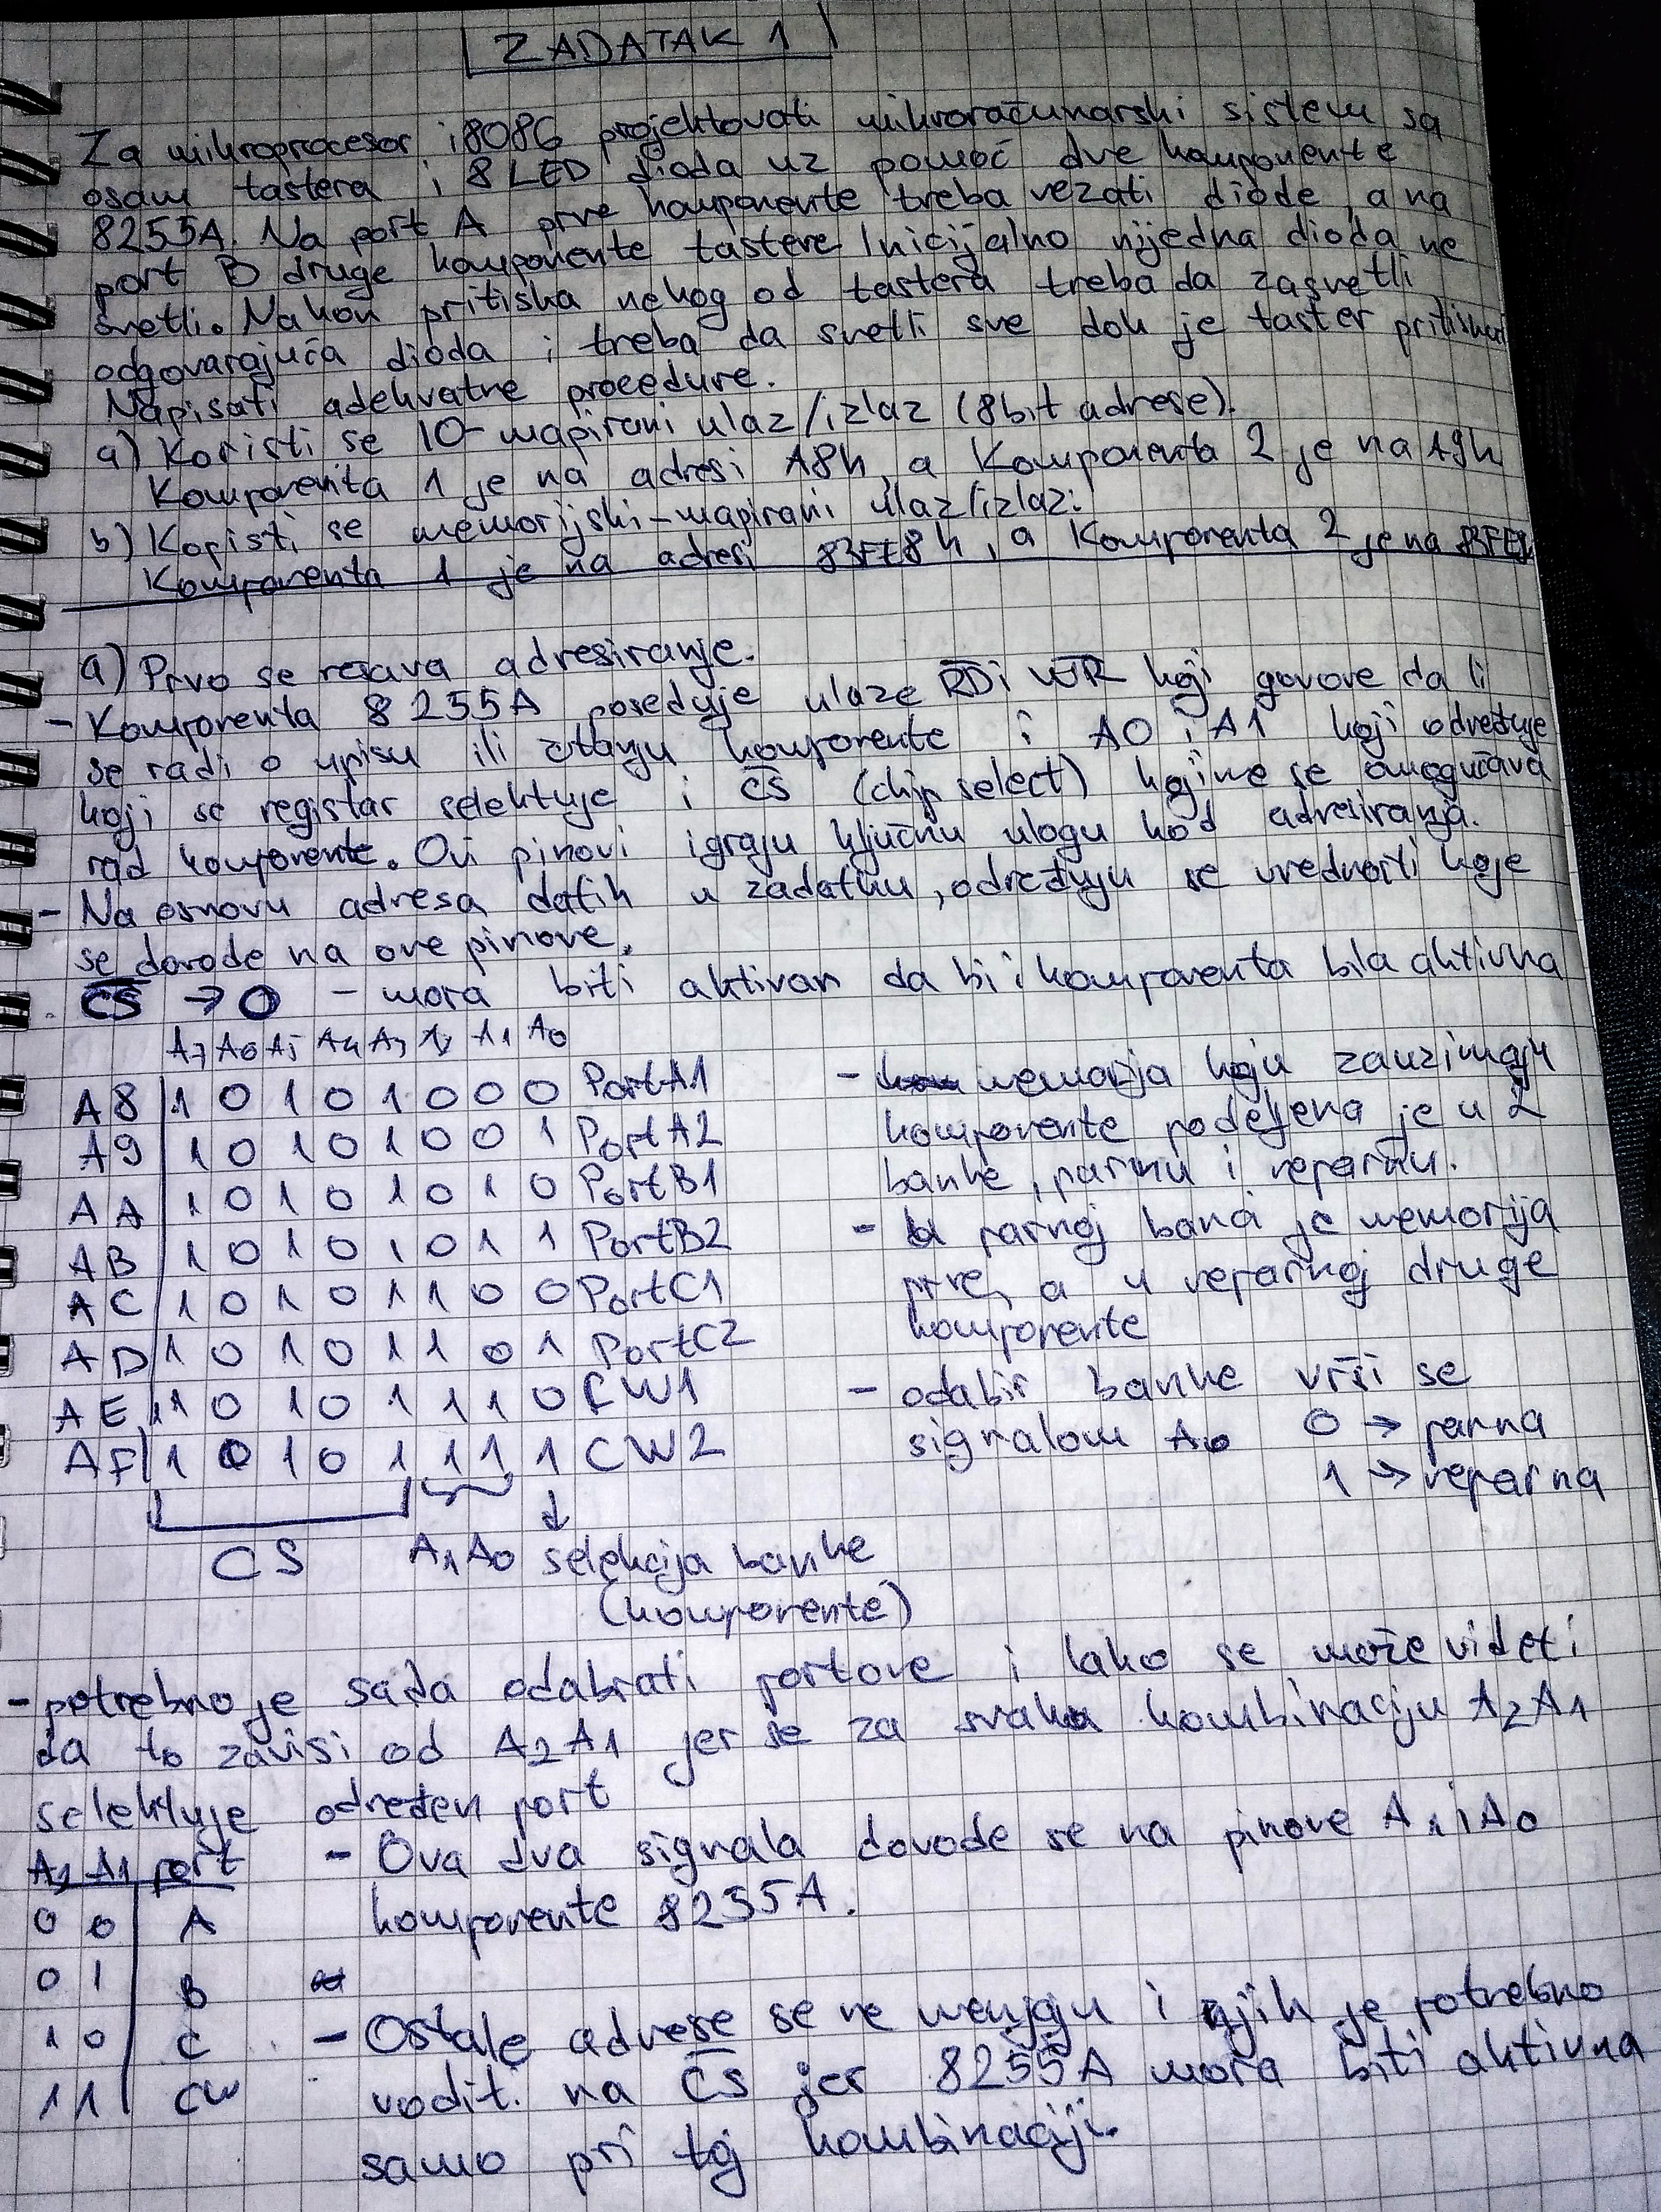 ZADATAK 1
Za mikroprocesor i8086 projektovati mikroračunarski sistem sa
osam tastera i 8 LED dioda uz pomoć dve komponente
8255A. Na port A prve komponente treba vezati diode, a na
port B druge komponente tastere. Inicijalno nijedna dioda ne
svetli. Nakon pritiska nekog od tastera treba da zasvetli
odgovarajuća dioda i treba da svetli sve dok je taster pritisnut
Napisati adekvatne procedure.
a) Koristi se IO-mapirani ulaz/izlaz (8bit adrese).
Komponenta 1 je na adresi A8h, a Komponenta 2 je na A9h
b) Koristi se memorijski-mapirani ulaz/izlaz:
Komponenta 1 je na adresi h, a Komponenta 2 je na
a) Prvo se resava adresiranje.
- Komponenta 8255A poseduje ulaze RD i WR koji govore da li
se radi o upisu ili čitanju komponente i A0 i A1 koji određuje
koji se registar selektuje i CS (chip select) kojime se omogućava
rad komponente. Ovi pinovi igraju ključnu ulogu kod adresiranja.
- Na osnovu adresa datih u zadatku, određuju se vrednosti koje
se dovode na ove pinove.
CS → 0 - mora biti aktivan da bi i komponenta bila aktivna
A7 A6 A5 A4 A3 A2 A1 A0
A8 1 0 1 0 1 0 0 0 PortA1 - memorija koju zauzimaju
A9 1 0 1 0 1 0 0 1 PortA2 komponente podeljena je u 2
AA 1 0 1 0 1 0 1 0 PortB1 banke, parnu i neparnu.
AB 1 0 1 0 1 0 1 1 PortB2 - U parnoj banci je memorija
AC 1 0 1 0 1 1 0 0 PortC1 prve, a u neparnoj druge
AD 1 0 1 0 1 1 0 1 PortC2 komponente
AE 1 0 1 0 1 1 1 0 CW1 - odabir banke vrši se
AF 1 0 1 0 1 1 1 1 CW2 signalom A0 0 → parna
1 → neparna
CS A1 A0 selekcija banke
(komponente)
- potrebno je sada odabrati portove i lako se može videti
da to zavisi od A2A1 jer se za svaku kombinaciju A2A1
selektuje određen port
A2 A1 port - Ova dva signala dovode se na pinove A1 i A0
0 0 A komponente 8255A.
0 1 B
1 0 C - Ostale adrese se ne menjaju i njih je potrebno
1 1 CW vodit. na CS jer 8255A mora biti aktivna
samo pri toj kombinaciji.